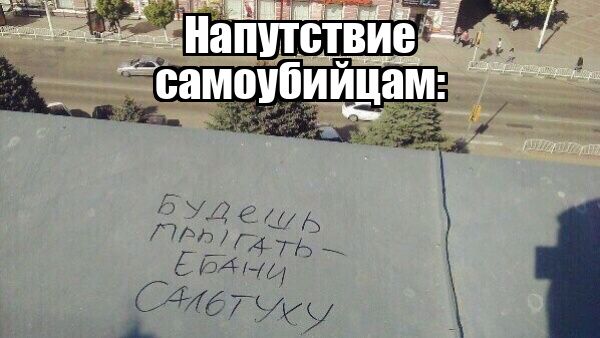 Напутствие
самоубийцам:
БУДЕШЬ
ПРЫГАТЬ –
ЕБАНИ
САЛЬТУХУ